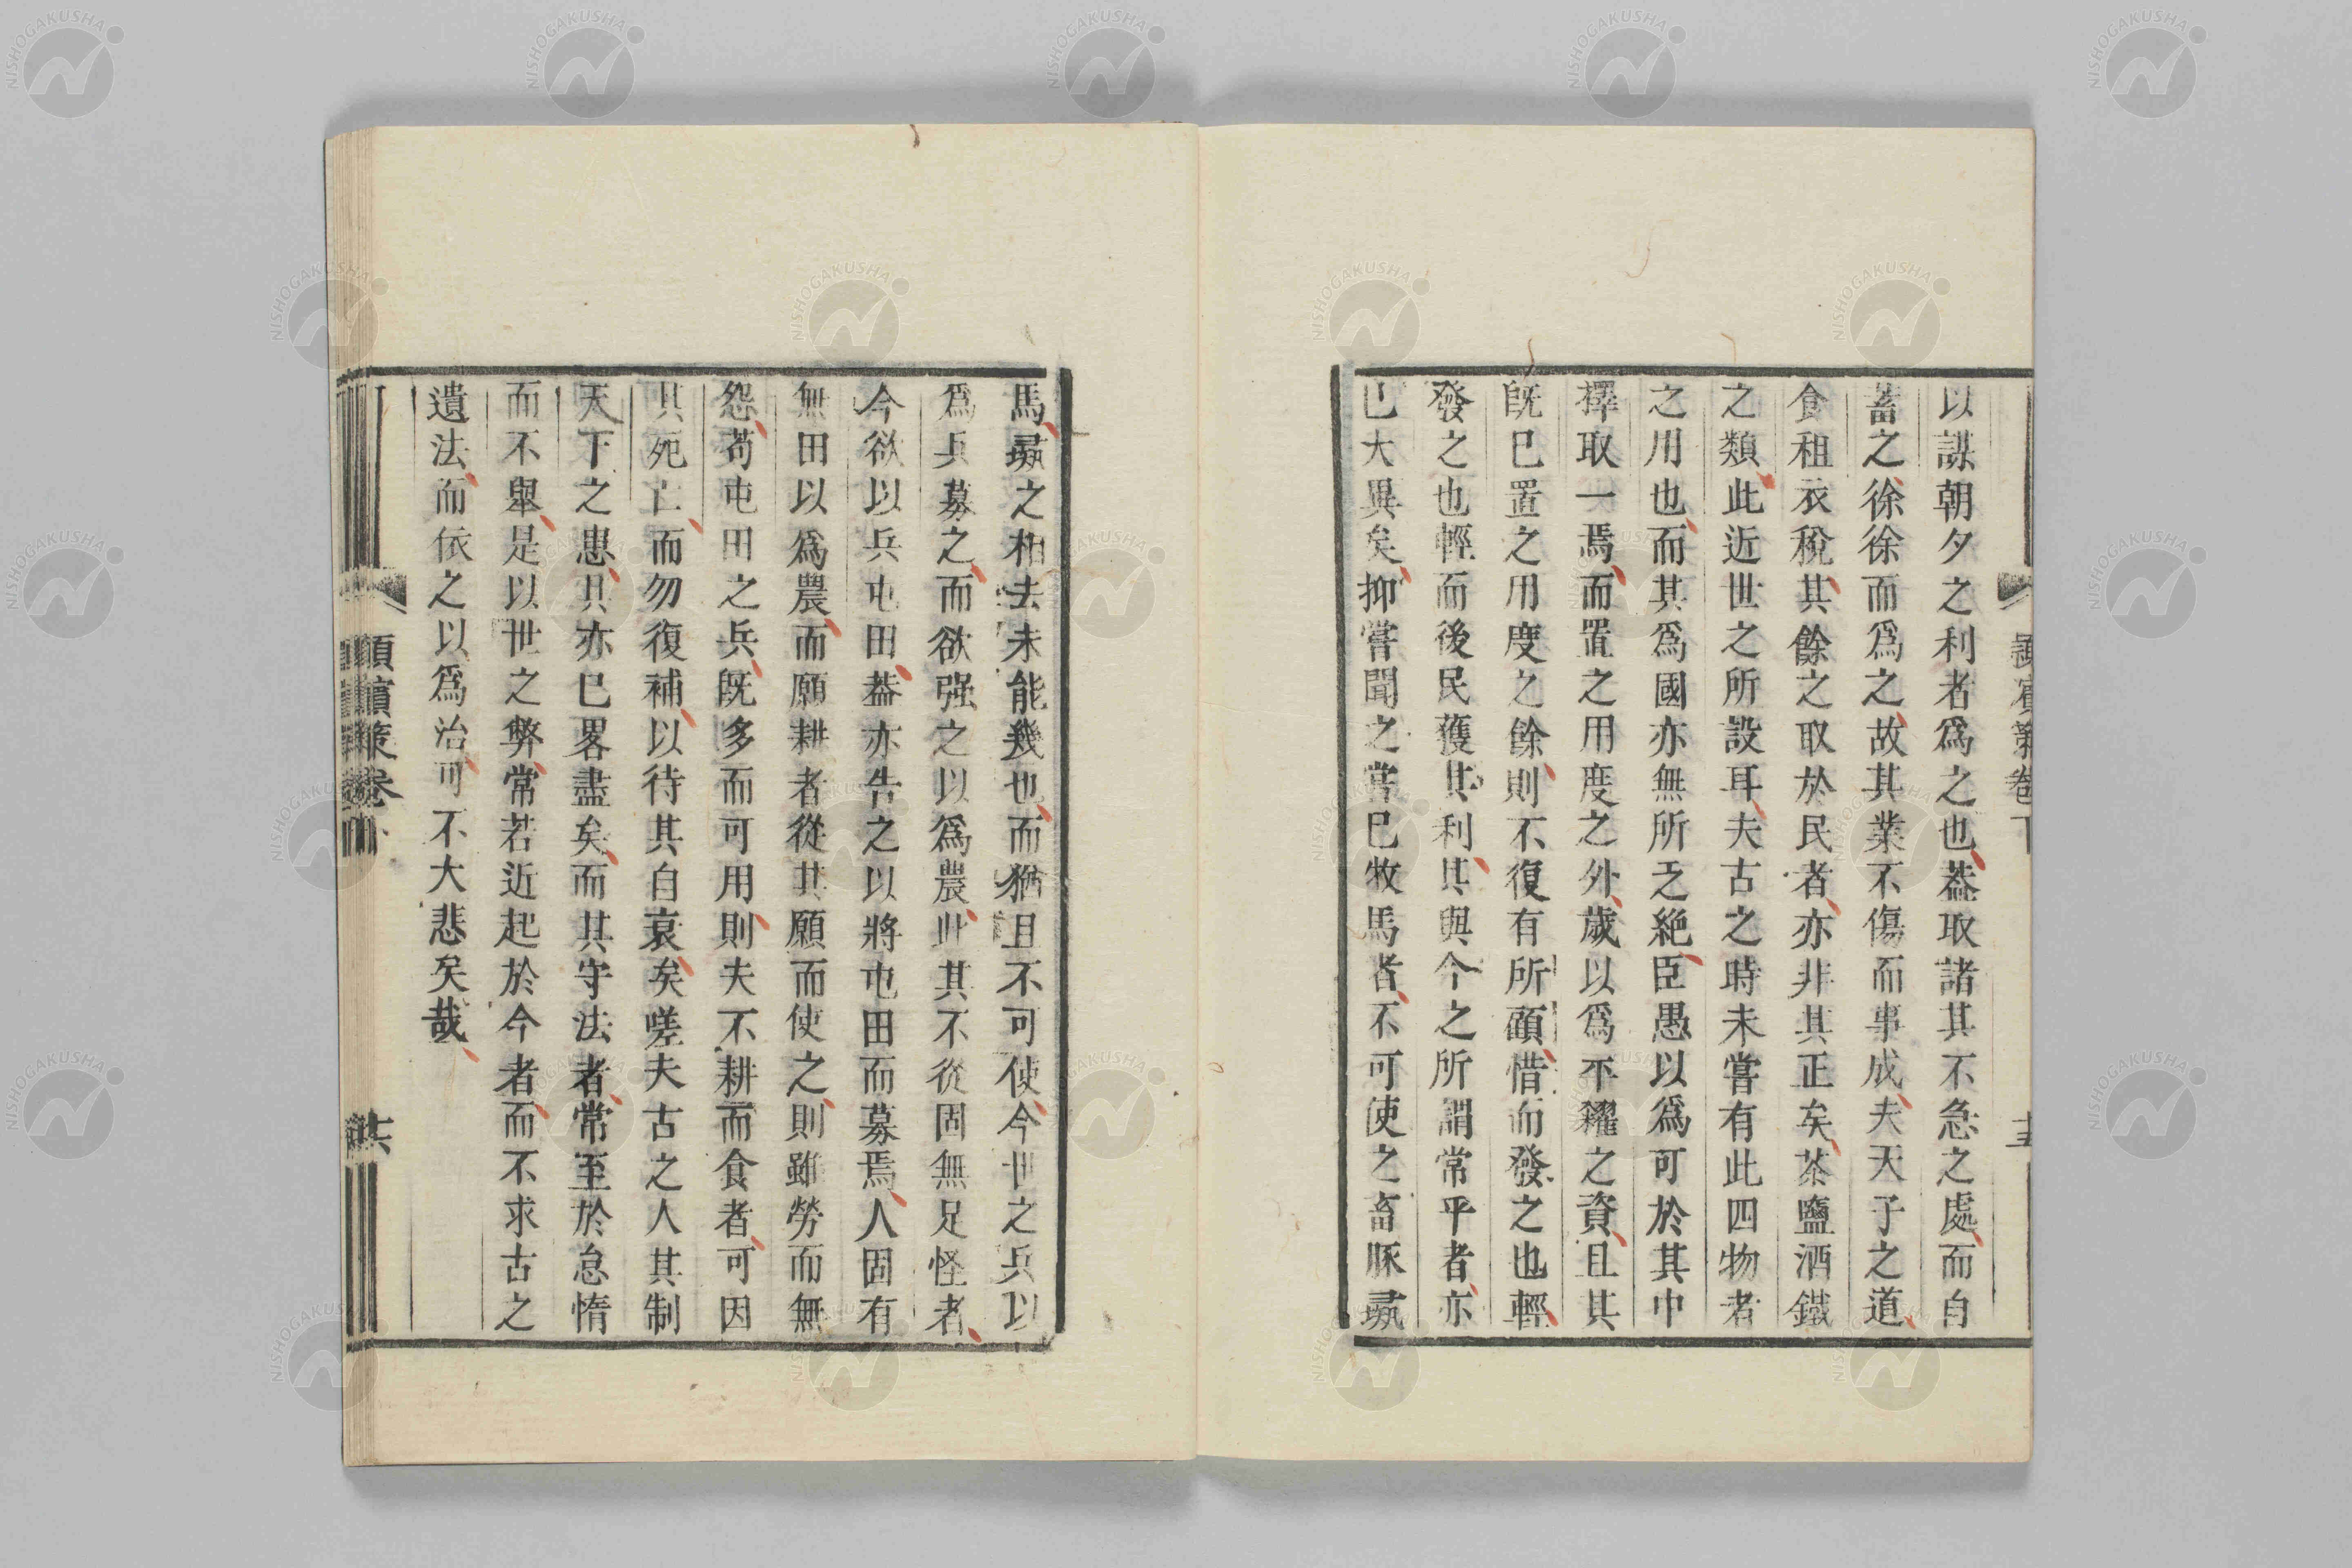 以謀朝夕之利者爲之也葢取諸其不急之處而自
蓄之徐徐而爲之故其業不傷而事成夫天子之道
食租衣稅其餘之取於民者亦非其正矣茶鹽酒鐵
之類此近世之所設耳夫古之時未嘗有此四物者
之用也而其爲國亦無所乏絕臣愚以爲可於其中
擇取一焉而置之用度之外歲以爲平糴之資且其
旣已置之用度之餘則不復有所顧惜而發之也輕
發之也輕而後民獲其利其與今之所謂常平者亦
已大異矣抑嘗聞之嘗已牧馬者不可使之畜豚彘
馬彘之相去未能幾也而猶且不可使今世之兵以
爲兵募之而欲强之以爲農此其不從固無足怪者
今欲以兵屯田葢亦告之以將屯田而募焉人固有
無田以爲農而願耕者從其願而使之則雖勞而無
怨苟屯田之兵旣多而可用則夫不耕而食者可因
其死亡而勿復補以待其自衰矣嗟夫古之人其制
天下之患其亦已畧盡矣而其守法者常至於怠惰
而不舉是以世之弊常若近起於今者而不求古之
遺法而依之以爲治可不大悲矣哉
潁濱策卷下
十五
潁濱策卷
十六
NISHOGAKUSHA